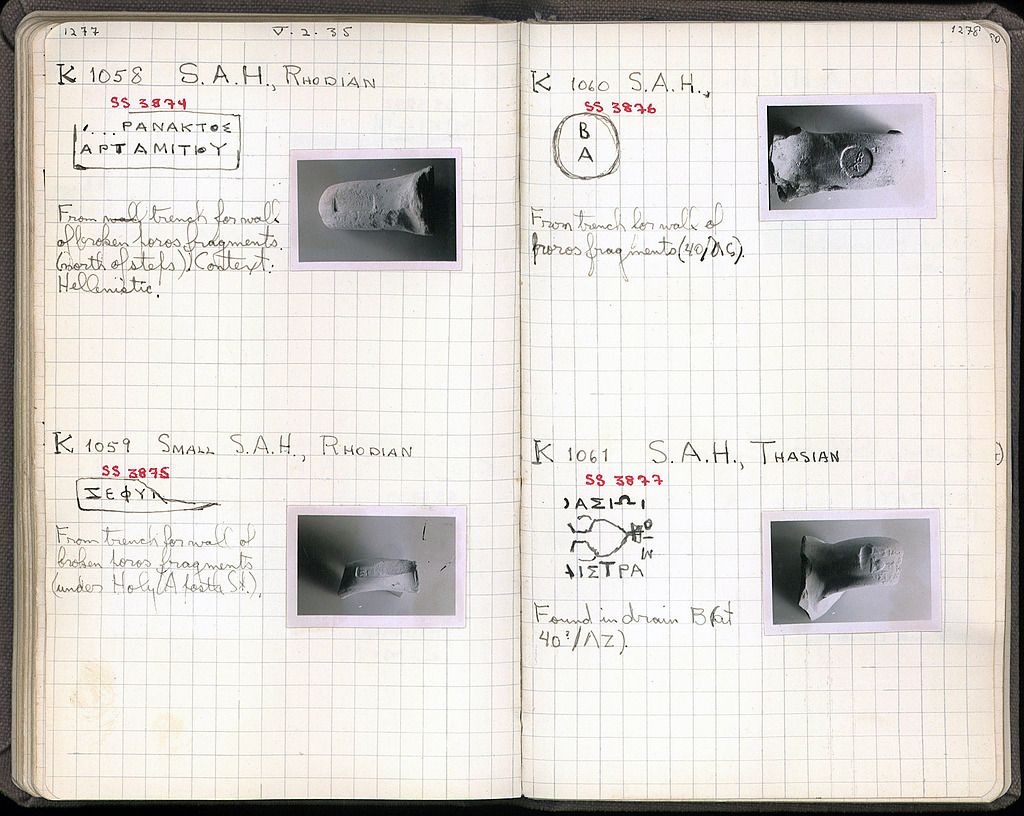 1277
V. 2. 35
K 1058 S.A.H., RHODIAN
SS 3874
'... ΡΑΝΑΚΤΟΣ
ΑΡΤΑΜΙΤΙΟΥ
From wall trench for wall
of broken poros fragments.
(north of steps). Context:
Hellenistic.
K 1059 SMALL S.A.H., RHODIAN
SS 3875
ΣΕΦΥΛ
From trench for wall of
broken poros fragments
(under Holy Apostle St.).
1278
K 1060 S.A.H.,
SS 3876
Β
Α
From trench for wall of
poros fragments (40/ΛϚ).
K 1061 S.A.H., THASIAN
SS 3877
ΑΣΙΩΙ
ΙΣΤΡΑ
Found in drain B (at
40?/ΛΖ).